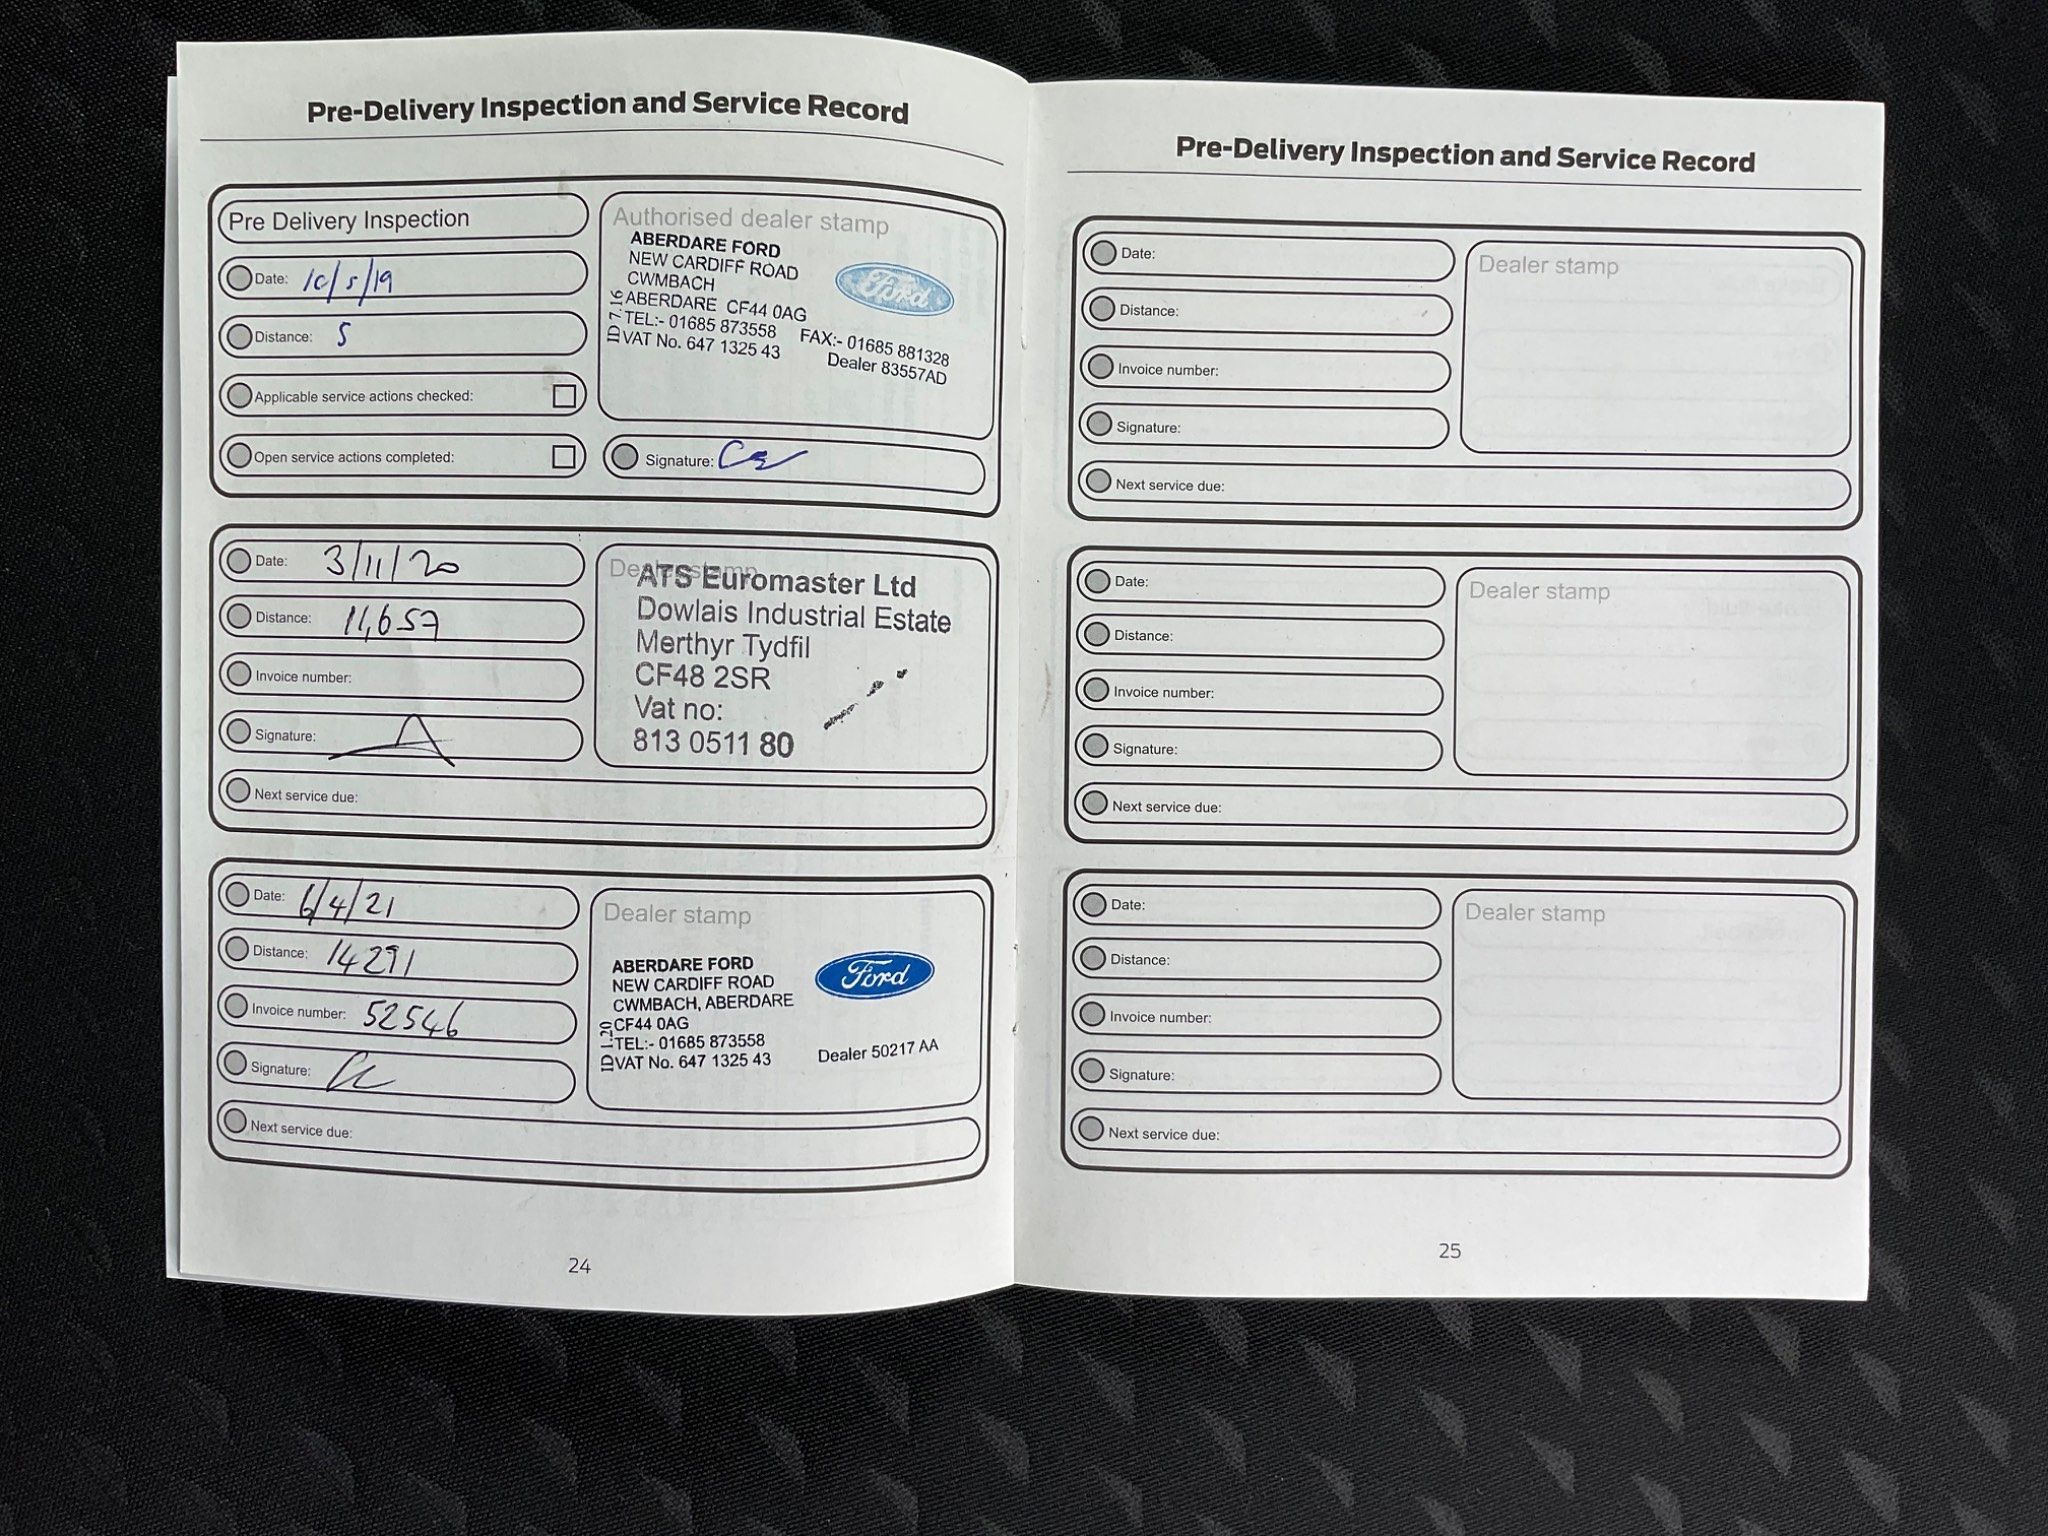 Pre-Delivery Inspection and Service Record
Pre Delivery Inspection
Date: 10/5/19
Distance: 5
Applicable service actions checked:
Open service actions completed:
Authorised dealer stamp
ABERDARE FORD
NEW CARDIFF ROAD
CWMBACH
ABERDARE CF44 0AG
TEL:- 01685 873558 FAX:- 01685 881328
VAT No. 647 1325 43 Dealer 83557AD
ID 7.16
Ford
Signature:
Date: 3/11/20
Distance: 11,657
Invoice number:
Signature:
Next service due:
Dealer stamp
ATS Euromaster Ltd
Dowlais Industrial Estate
Merthyr Tydfil
CF48 2SR
Vat no:
813 0511 80
Date: 6/4/21
Distance: 14291
Invoice number: 52546
Signature:
Next service due:
Dealer stamp
ABERDARE FORD
NEW CARDIFF ROAD
CWMBACH, ABERDARE
CF44 0AG
TEL:- 01685 873558
VAT No. 647 1325 43 Dealer 50217 AA
Ford
24
Pre-Delivery Inspection and Service Record
Date:
Distance:
Invoice number:
Signature:
Next service due:
Dealer stamp
Date:
Distance:
Invoice number:
Signature:
Next service due:
Dealer stamp
Date:
Distance:
Invoice number:
Signature:
Next service due:
Dealer stamp
25